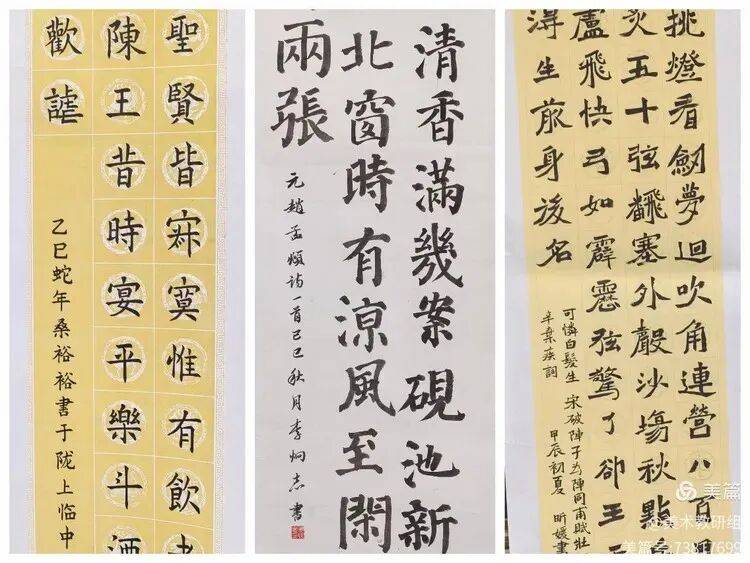 聖賢皆寂寞惟有飲
陳王昔時宴平樂斗酒
歡謔
乙巳蛇年桑裕裕書于陇上临中
清香滿幾案硯池新
北窗時有涼風至閑
兩張
元趙孟頫詩一首乙巳秋月李炯志書
挑燈看劍夢迴吹角連營八百
炙五十弦翻塞外聲沙塲秋點
盧飛快弓如霹靂弦驚了卻王
得生前身後名
可憐白髮生 宋破陣子为陳同甫賦壯
辛棄疾詞 甲辰初夏 昕媛書
美篇
美术教研组
美篇号:73817699